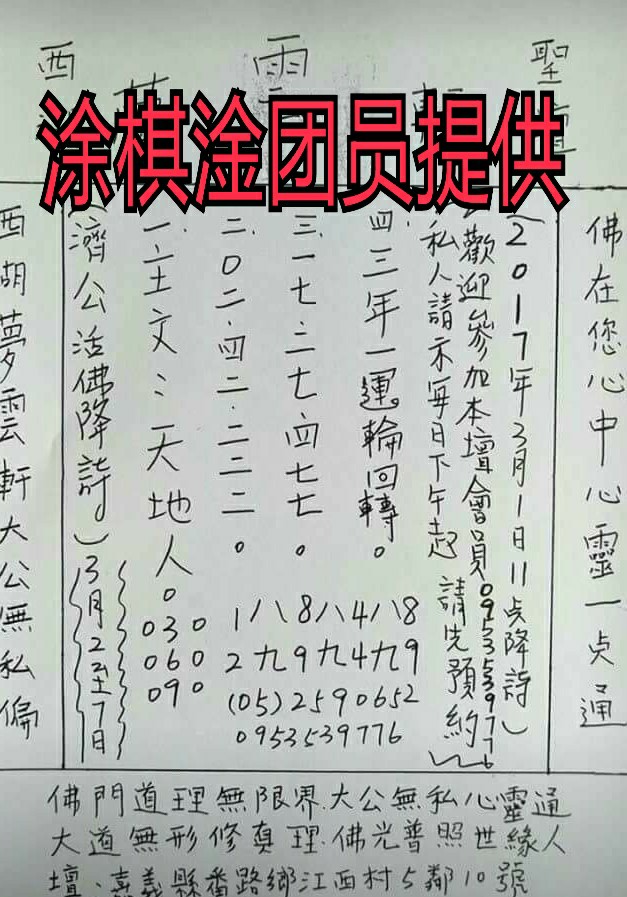 西 雲 聖
涂棋淦团员提供
佛在您心中心靈一点通
(2017年3月1日11点降詩)
歡迎參加本壇會員0953539776
私人請示每日下午起請先預約
四三年一運輪回轉。
三.一七.二七.四七七。
二.0二.四二.二三二。
一.土文:天地人。
030
060
090
1八8八4八8
2九9九4九9
(05)2590652
0953539776
濟公活佛降詩)3月2至7日
西湖夢雲軒大公無私偏
佛門道理無限界.大公無私心靈通
大道無形修真理.佛光普照世緣人
壇:嘉義縣番路鄉江西村5鄰10號